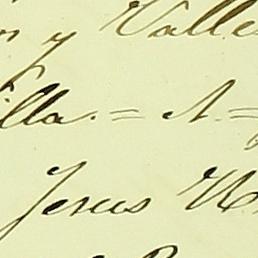 y Valle
illa. = A. =
Jesus M